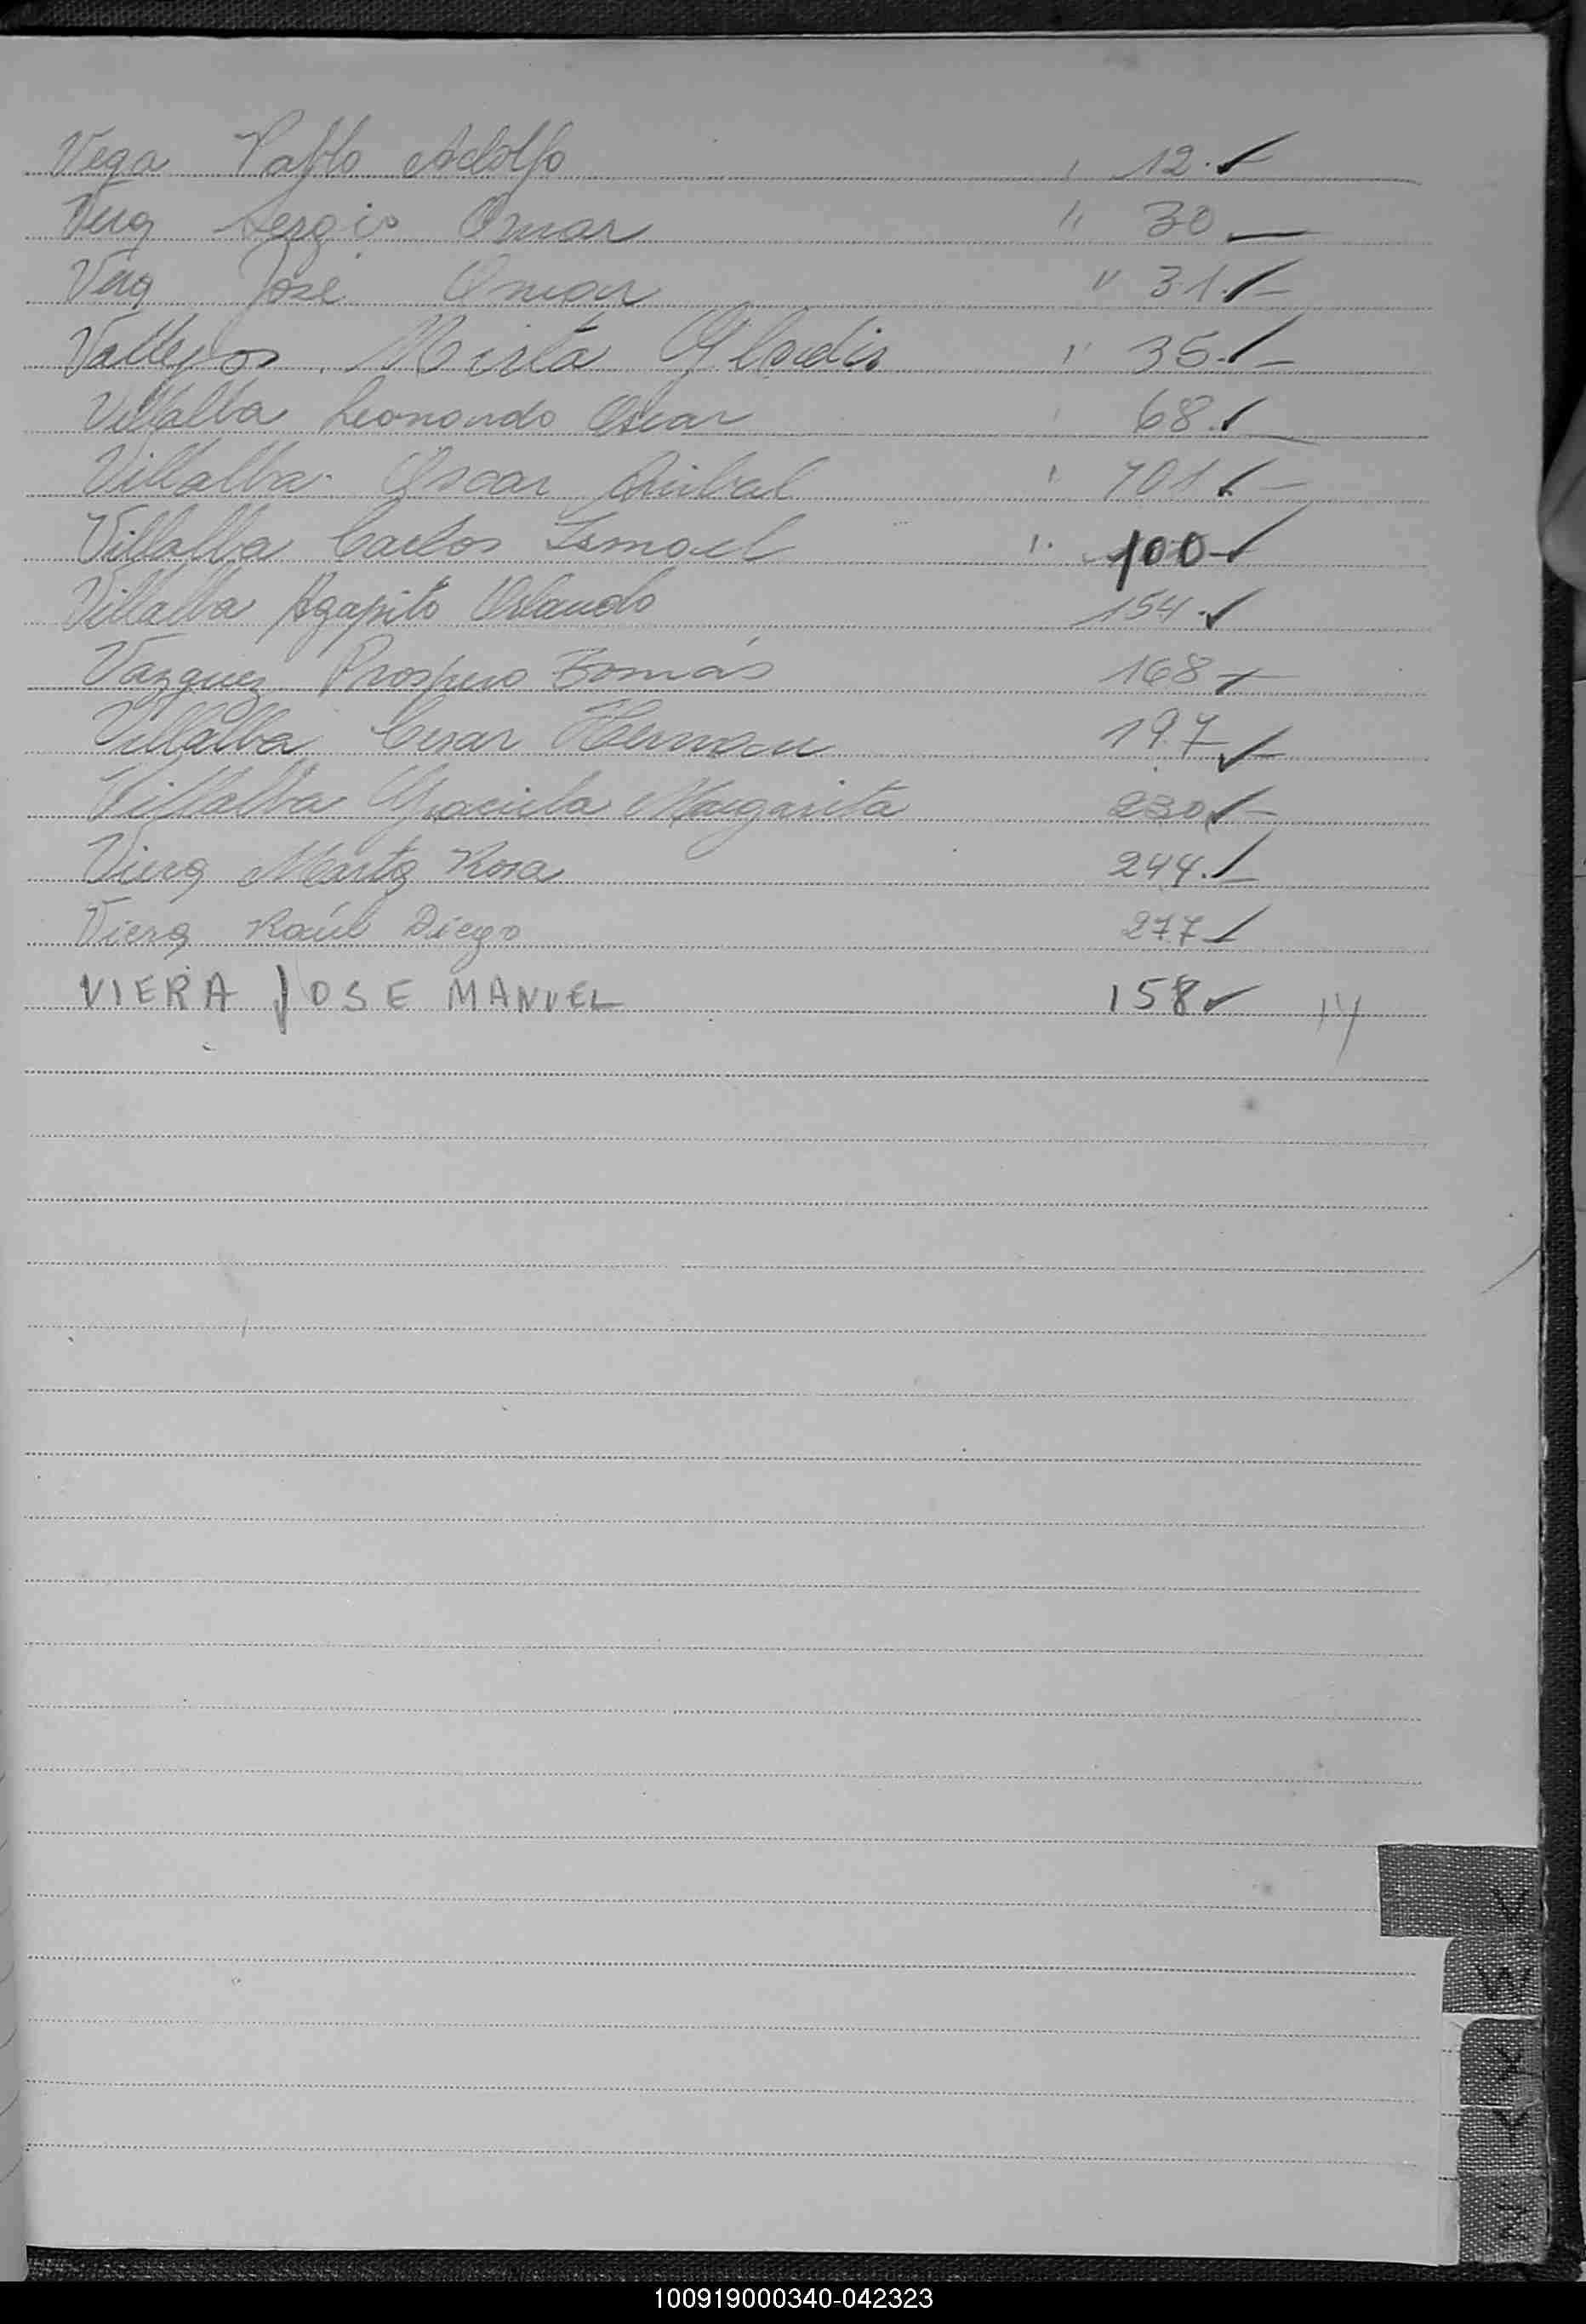 Vega Pablo Adolfo " 12.
Vera Sergio Omar " 30
Vera José Omar " 31.
Vallejos Mirta Gladis " 35.
Villalba Leonardo Oscar 68.
Villalba Oscar Anibal " 701
Villalba Carlos Ismael " 100
Villalba Agapito Orlando 154.
Vazquez Prospero Tomás 168
Villalba Cesar Hernan 197
Villalba Graciela Margarita 230
Viera Marta Rosa 244.
Viera Raúl Diego 277
VIERA JOSE MANUEL 158 14
100919000340-042323